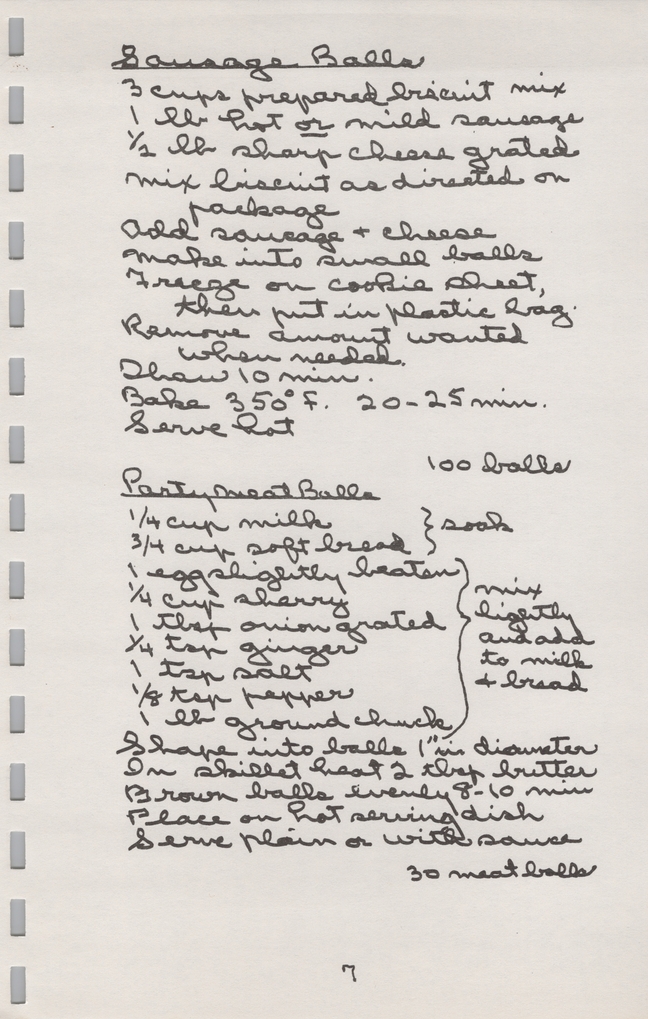 Sausage Balls
3 cups prepared biscuit mix
1 lb hot or mild sausage
1/2 lb sharp cheese grated
mix biscuit as directed on
package
Add sausage + cheese
make into small balls
Freeze on cookie sheet,
then put in plastic bag.
Remove amount wanted
when needed.
Thaw 10 min.
Bake 350° F. 20-25 min.
Serve hot
100 balls
Party Meat Balls
1/4 cup milk } soak
3/4 cup soft bread
1 egg slightly beaten
1/4 cup sherry
1 tbsp onion grated
1/4 tsp ginger
1 tsp salt
1/8 tsp pepper
1 lb ground chuck
} mix
lightly
and add
to milk
+ bread
Shape into balls 1" in diameter
In skillet heat 2 tbsp butter
Brown balls evenly 8-10 min
Place on hot serving dish
Serve plain or with sauce
30 meat balls
7